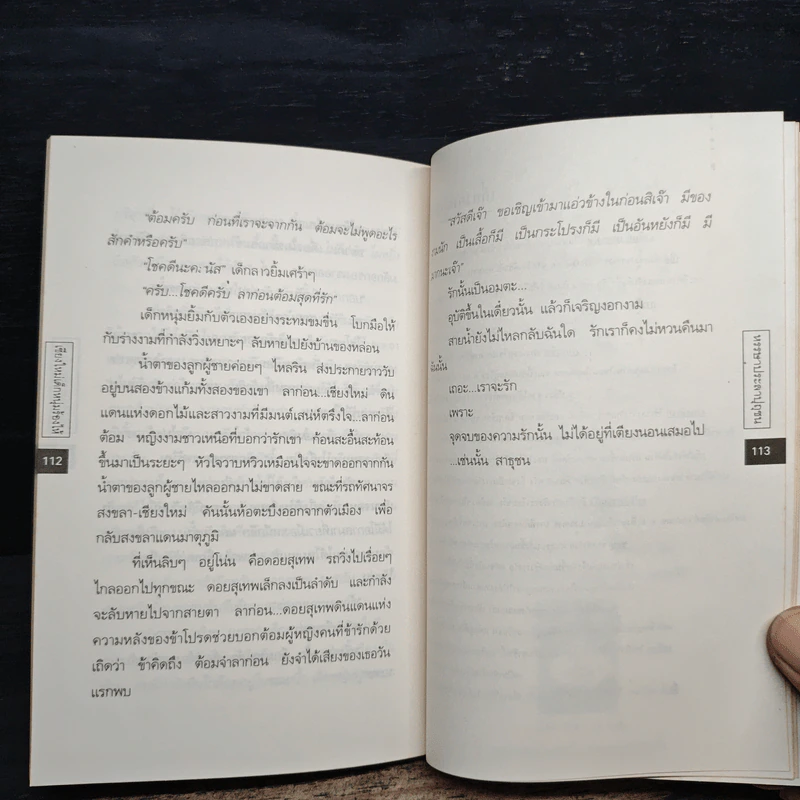 "ต้อมครับ ก่อนที่เราจะจากกัน ต้อมจะไม่พูดอะไร
สักคำหรือครับ"
"โชคดีนะคะ นัส" เด็กลาวยิ้มเศร้าๆ
"ครับ...โชคดีครับ ลาก่อนต้อมสุดที่รัก"
เด็กหนุ่มยิ้มกับตัวเองอย่างระทมขมขื่น โบกมือให้
กับร่างงามที่กำลังวิ่งเหยาะๆ ลับหายไปยังบ้านของหล่อน
น้ำตาของลูกผู้ชายค่อยๆ ไหลริน ส่งประกายวาววับ
อยู่บนสองข้างแก้มทั้งสองของเขา ลาก่อน...เชียงใหม่ ดิน
แดนแห่งดอกไม้และสาวงามที่มีมนต์เสน่ห์ตรึงใจ...ลาก่อน
ต้อม หญิงงามชาวเหนือที่บอกว่ารักเขา ก้อนสะอื้นสะท้อน
ขึ้นมาเป็นระยะๆ หัวใจวาบหวิวเหมือนใจจะขาดออกจากกัน
น้ำตาของลูกผู้ชายไหลออกมาไม่ขาดสาย ขณะที่รถทัศนาจร
สงขลา-เชียงใหม่ คันนั้นห้อตะบึงออกจากตัวเมือง เพื่อ
กลับสงขลาแดนมาตุภูมิ
ที่เห็นลิบๆ อยู่โน่น คือดอยสุเทพ รถวิ่งไปเรื่อยๆ
ไกลออกไปทุกขณะ ดอยสุเทพเล็กลงเป็นลำดับ และกำลัง
จะลับหายไปจากสายตา ลาก่อน...ดอยสุเทพดินแดนแห่ง
ความหลังของข้าโปรดช่วยบอกต้อมผู้หญิงคนที่ข้ารักด้วย
เถิดว่า ข้าคิดถึง ต้อมจ๋าลาก่อน ยังจำได้เสียงของเธอวัน
แรกพบ
112
"สวัสดีเจ้า ขอเชิญเข้ามาแอ่วข้างในก่อนสิเจ้า มีของ
เป็นเสื้อก็มี เป็นกระโปรงก็มี เป็นอันหยังก็มี มี
รักนั้นเป็นอมตะ...
อุบัติขึ้นในเดี๋ยวนั้น แล้วก็เจริญงอกงาม
สายน้ำยังไม่ไหลกลับฉันใด รักเราก็คงไม่หวนคืนมา
ฉันนั้น
เถอะ...เราจะรัก
เพราะ
จุดจบของความรักนั้น ไม่ได้อยู่ที่เตียงนอนเสมอไป
...เช่นนั้น สาธุชน
113